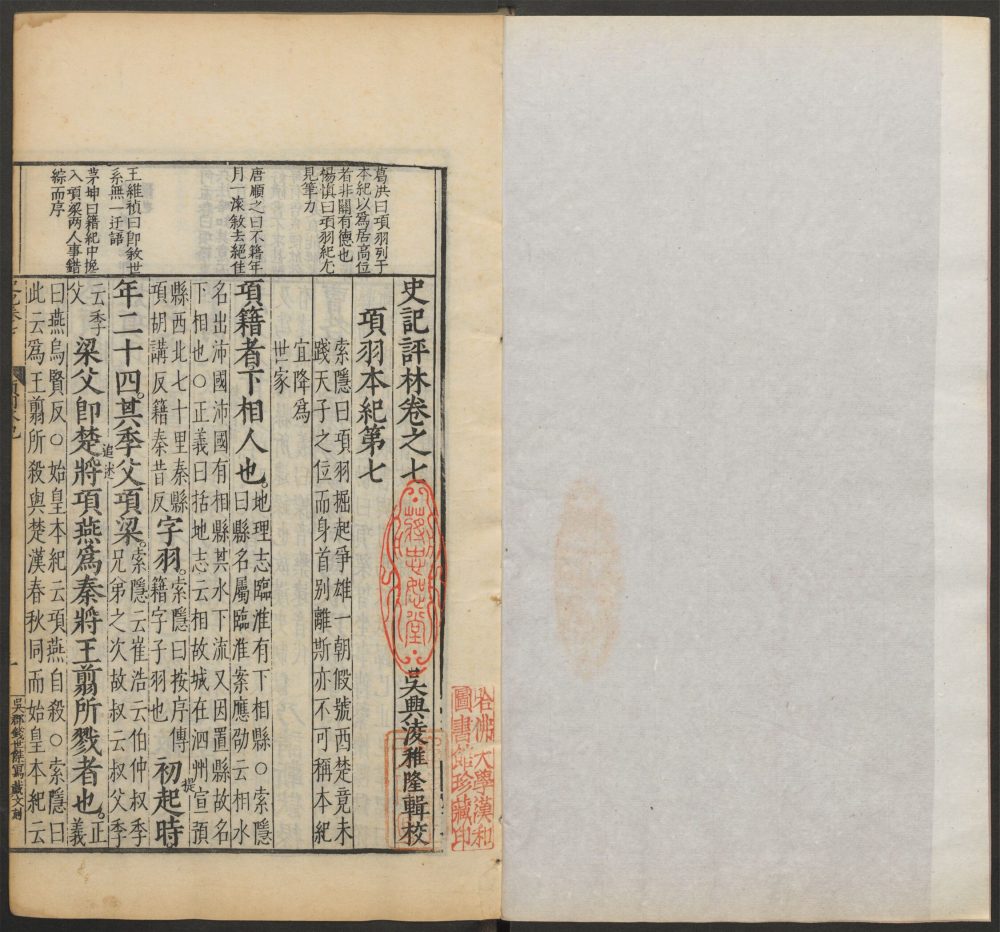 葛洪曰項羽列于
本紀以爲居高位
者非關有德也
楊慎曰項羽紀尤
見筆力
唐順之曰不籍年
月一凑敘去絕佳
王維楨曰即敘世
系無一迂語
茅坤曰籍紀中攙
入項梁两人事錯
綜而序
史記評林卷之七
吳興凌稚隆輯校
項羽本紀第七
索隱曰項羽掘起爭雄一朝假號西楚竟未
踐天子之位而身首别離斯亦不可稱本紀
宜降爲
世家
項籍者下相人也。
地理志臨淮有下相縣○索隱
曰縣名屬臨淮案應劭云相水
名出沛國沛國有相縣其水下流又因置縣故名
下相也○正義曰括地志云相故城在泗州宣預
縣西北七十里秦縣
項胡講反籍秦昔反
字羽。
索隱曰按序傳
籍字子羽也
提
初起時
年二十四。其季父項梁。
追述
索隱云崔浩云伯仲叔季
兄弟之次故叔云叔父季
云季
父
梁父即楚將項燕爲秦將王翦所戮者也。
正
義
曰燕烏賢反○始皇本紀云項燕自殺○索隱曰
此云爲王翦所殺與楚漢春秋同而始皇本紀云
一
吳郡錢世傑寫
哈佛大學漢和
圖書館珍藏印